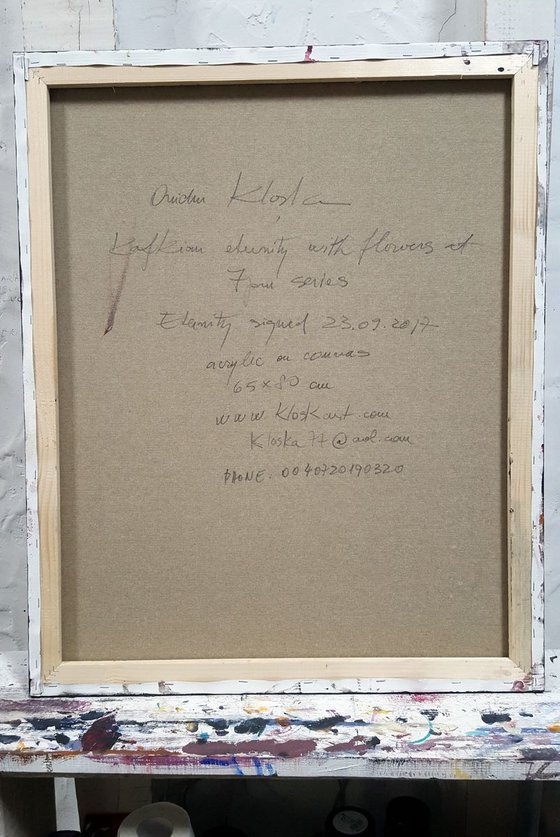 Ovidiu Kloska
Kafkian eternity with flowers at
7pm series
Eternity signed 23.09.2017
acrylic on canvas
65x80 cm
www Kloskart.com
Kloska77@aol.com
PHONE. 0040720190320